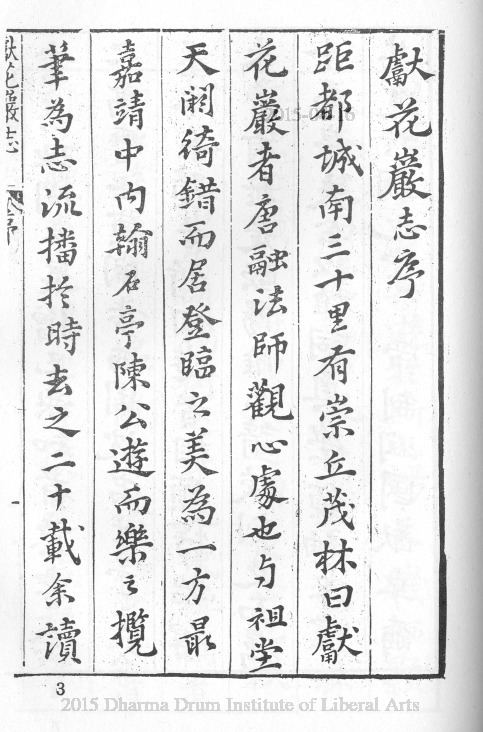 獻花巖志序
距都城南三十里有崇丘茂林曰獻
花巖者唐融法師觀心處也与祖堂
天闕綺錯而居登臨之美為一方最
嘉靖中內翰石亭陳公遊而樂之攬
筆為志流播於時去之二十載余讀
獻花巖志 序
3
2015 Dharma Drum Institute of Liberal Arts